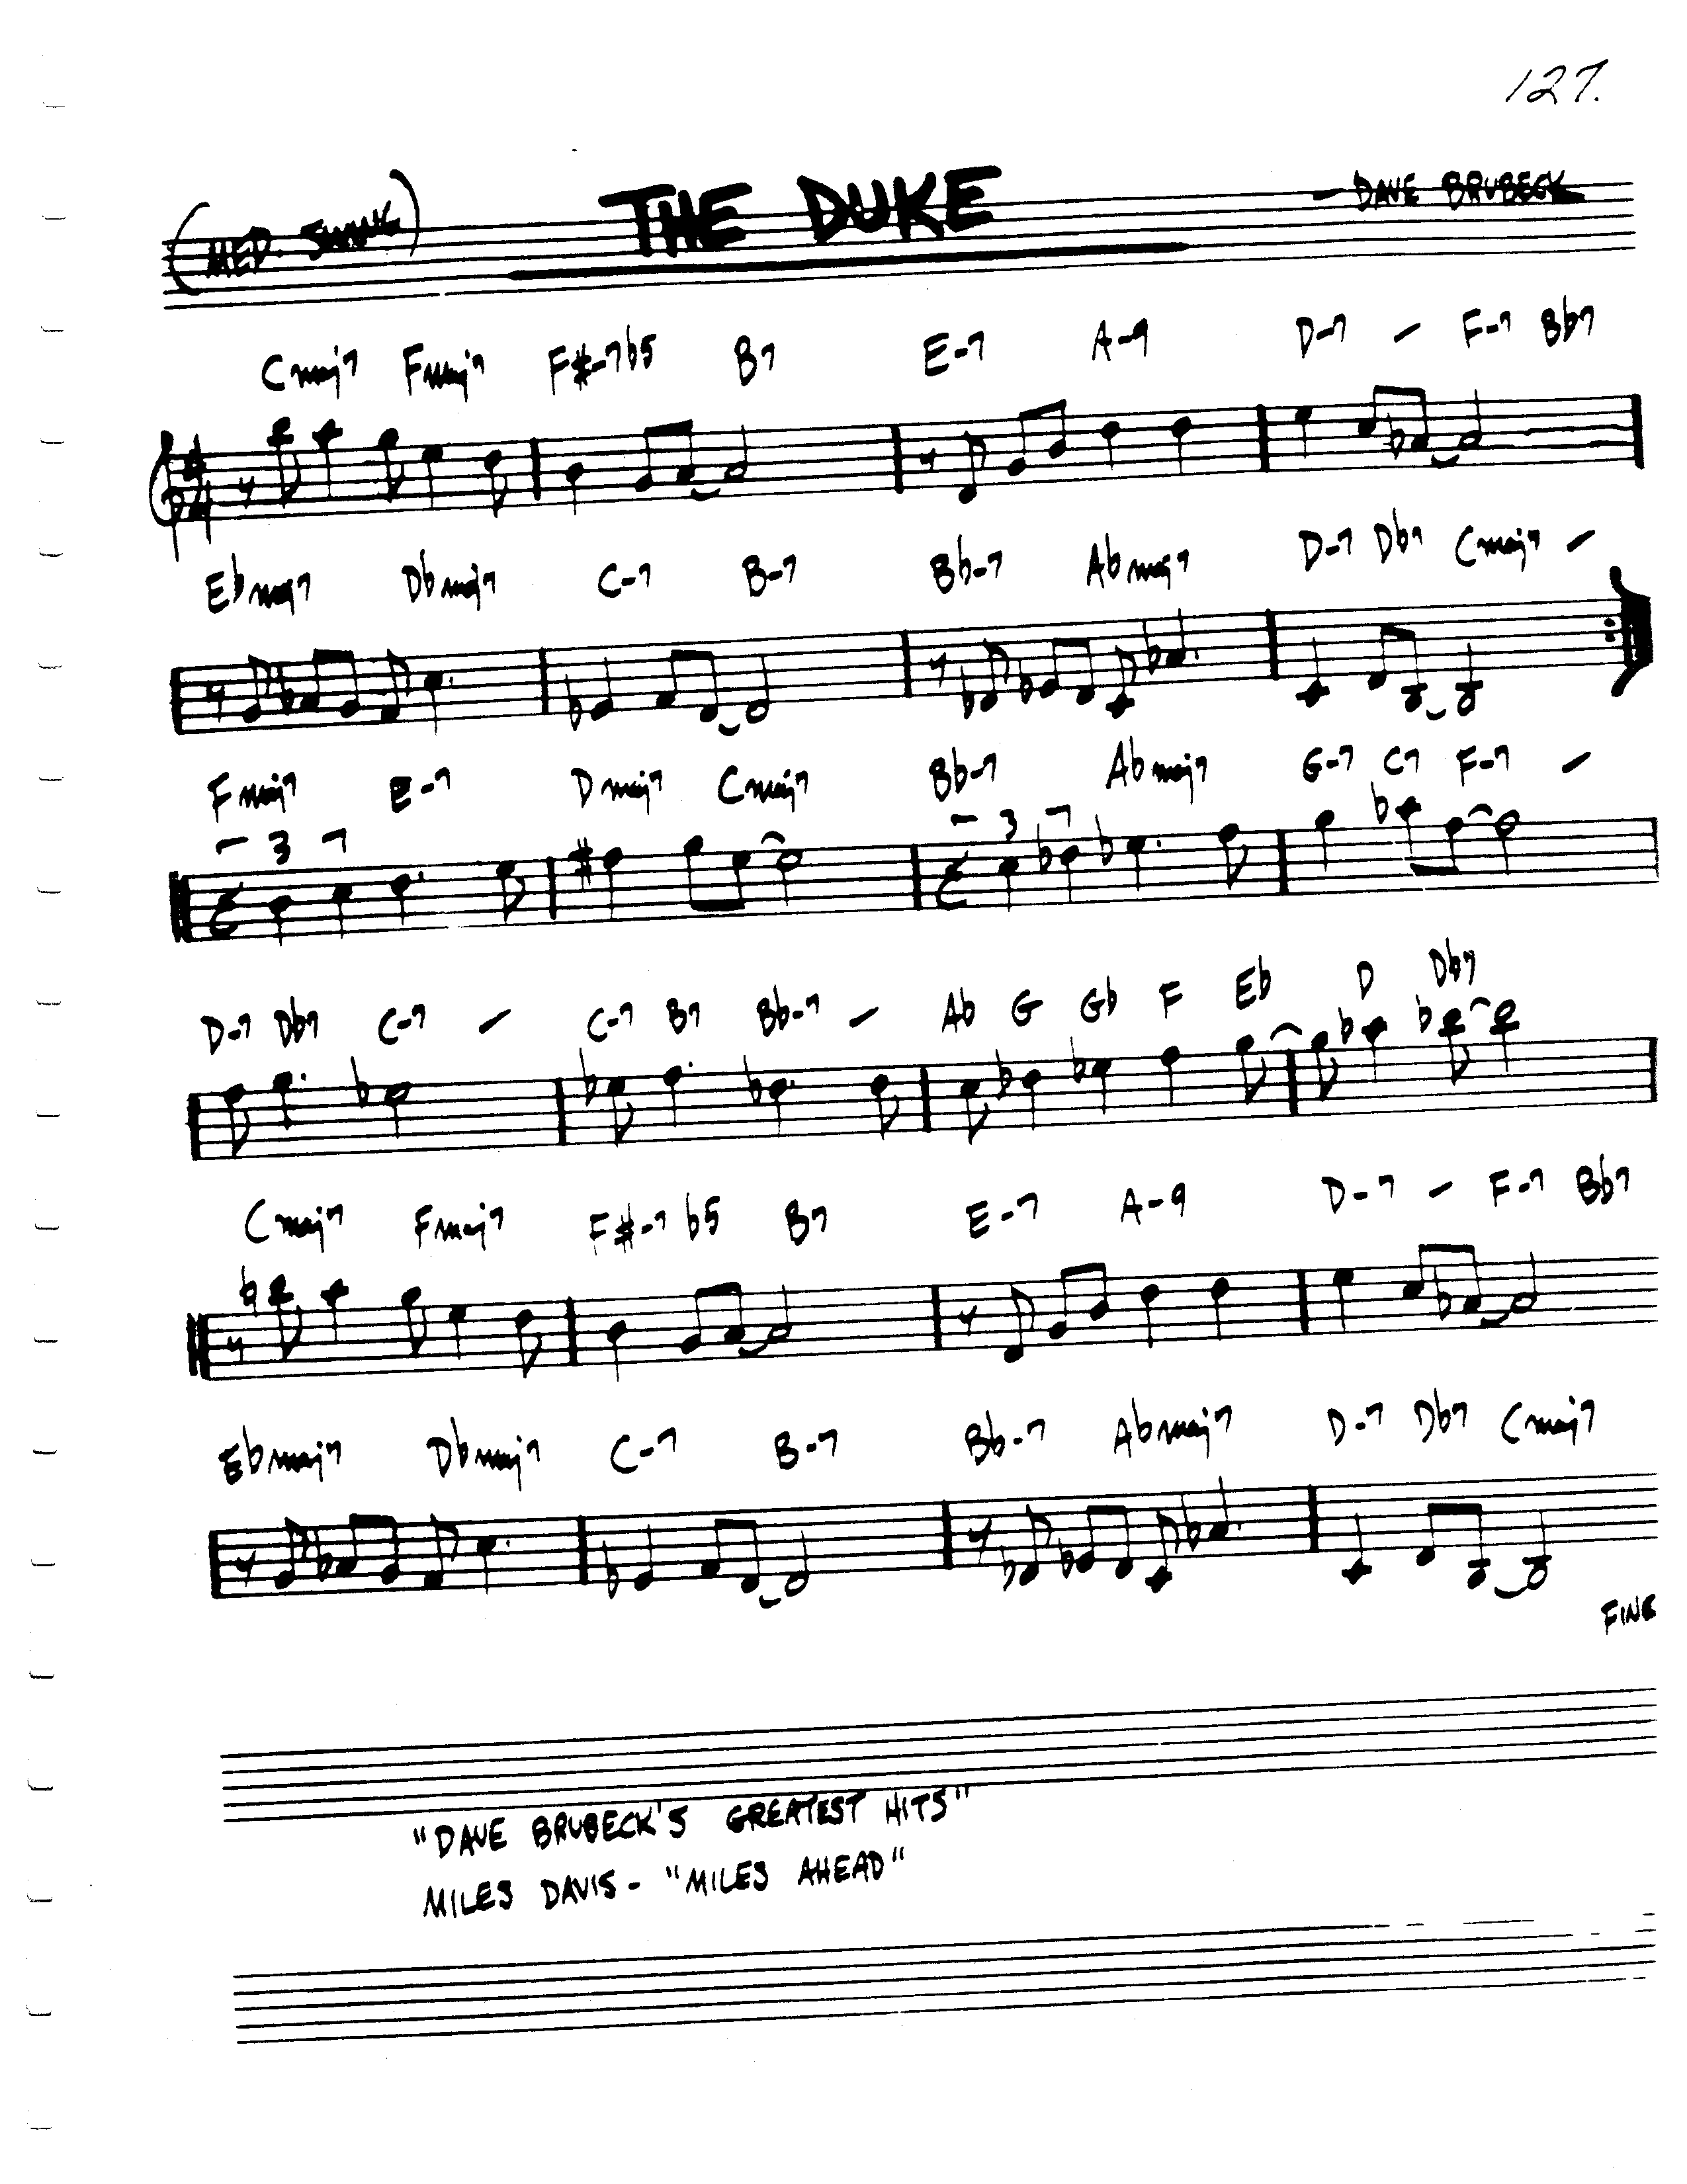 127.
(MED. SWING) THE DUKE - DAVE BRUBECK
Cmaj7 Fmaj7 F#-7b5 B7 E-7 A-9 D-7 - F-7 Bb7
Ebmaj7 Dbmaj7 C-7 B-7 Bb-7 Abmaj7 D-7 Db7 Cmaj7 -
Fmaj7 E-7 Dmaj7 Cmaj7 Bb-7 Abmaj7 G-7 C7 F-7 -
3 3
D-7 Db7 C-7 - C-7 B7 Bb-7 - Ab G Gb F Eb D Db7
Cmaj7 Fmaj7 F#-7b5 B7 E-7 A-9 D-7 - F-7 Bb7
Ebmaj7 Dbmaj7 C-7 B-7 Bb-7 Abmaj7 D-7 Db7 Cmaj7
FINE
"DAVE BRUBECK'S GREATEST HITS"
MILES DAVIS - "MILES AHEAD"